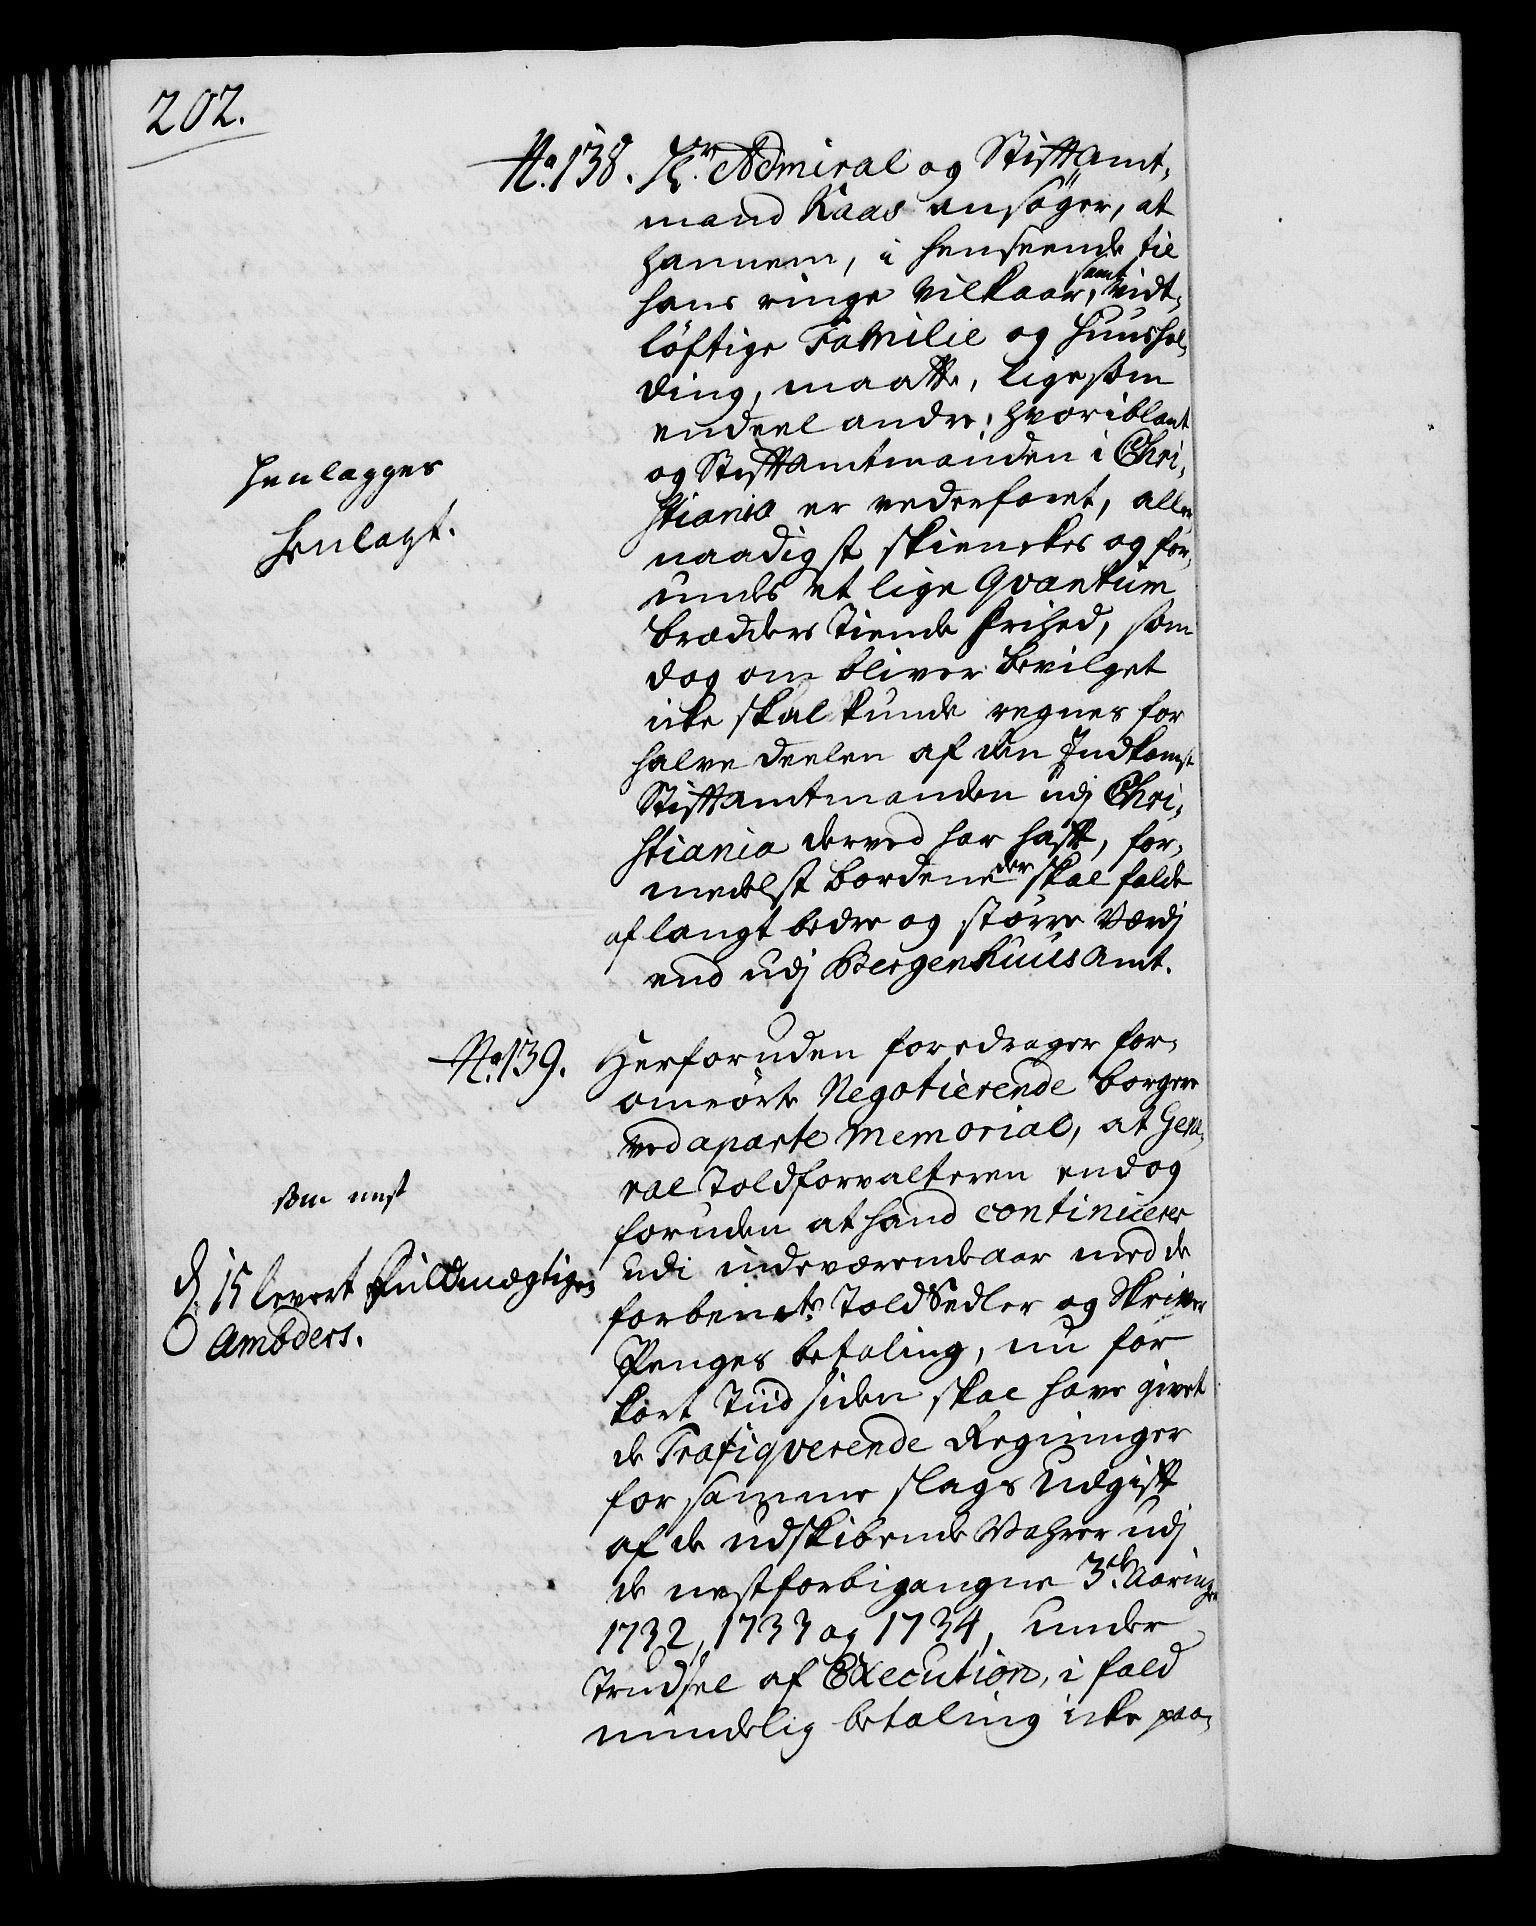 202.
No. 138. Hr. Admiral og Stiftamt,
mand Kaas ansøger, at
hannem, i henseende til
hans ringe Vilkaar, samt vidt,
løftige Familie og Huushol,
ding, maatte, ligesom
endeel andre, hvoriblant
og Stiftamtmanden i Chri,
stiania er vederfaret, aller,
naadigst skienckes og for,
undes et lige Qvantum
Brædders Tiende Frihed, som
dog om bliver bevilget
icke skal kunde regnes for
halve deelen af den Indkomst
Stiftamtmanden udj Chri,
stiania derved har hafft, for,
medelst Bordene der skal falde
af langt bedre og större Værdj
end udj Bergenhuus Amt.
Henlægges
Henlagt.
No. 139. Herforuden foredrager for,
omrörte Negotierende borgere
ved aparte Memorial, at Gene,
ral Toldforvalteren endog
foruden at hand continuerer
udi indeværende aar med de
forbente Told Sedler og Skriver
Penges betaling, nu for
kort Tiid siden skal have givet
de Trafiqverende Regninger
for samme slags Udgift
af de udskibende Vahrer udj
de nestforbigangne 3de Aaringer
1732, 1733 og 1734, under
Trudsel af Execution, i fald
mindelig betaling icke paa,
som nest
d. 15 levert Fuldmægtigen
Ambders.